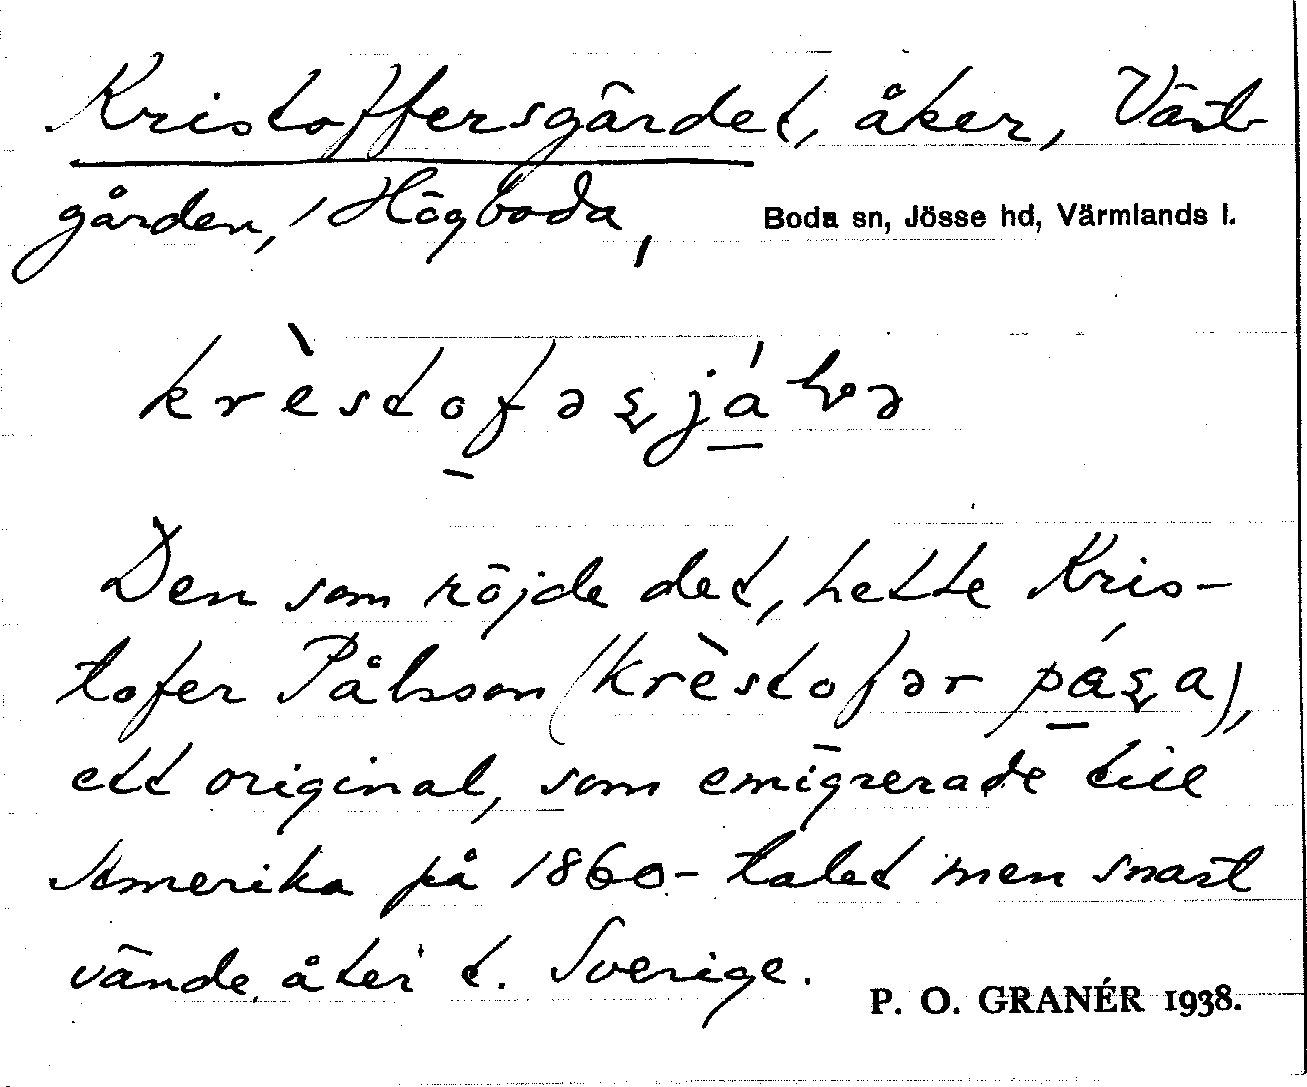 Kristoffersgärdet, åker, Väst-
gården, Högboda, Boda sn, Jösse hd, Värmlands l.
Den som röjde det, hette Kris-
tofer Pålsson (krèstofər
ett original, som emigrerade till
Amerika på 1860-talet men snart
vände åter t. Sverige.
P. O. GRANÉR 1938.